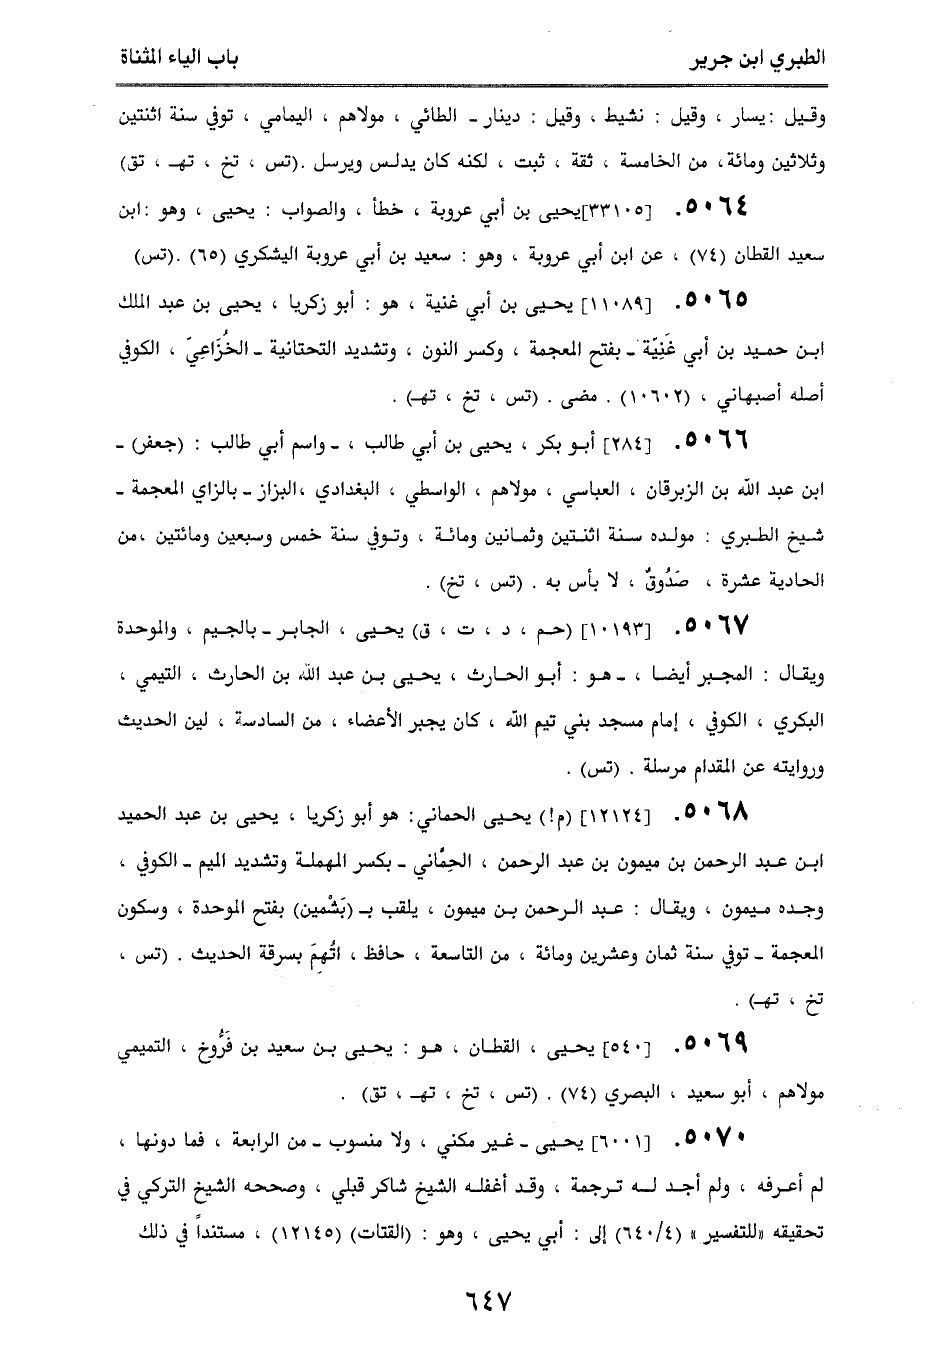 الطبري ابن جرير
باب الياء المثناة
وقيل : يسار ، وقيل : نشيط ، وقيل : دينار ـ الطائي ، مولاهم ، اليمامي ، توفي سنة اثنتين
وثلاثين ومائة، من الخامسة ، ثقة ، ثبت ، لكنه كان يدلس ويرسل .(تس ، تخ ، تهـ ، تق)
٥٠٦٤. [٣٣١٠٥]يحيى بن أبي عروبة ، خطأ ، والصواب : يحيى ، وهو :ابن
سعيد القطان (٧٤) ، عن ابن أبي عروبة ، وهو : سعيد بن أبي عروبة اليشكري (٦٥) .(تس)
٥٠٦٥. [١١٠٨٩] يحيى بن أبي غنية ، هو : أبو زكريا ، يحيى بن عبد الملك
ابن حميد بن أبي غَنِيَّة ـ بفتح المعجمة ، وكسر النون ، وتشديد التحتانية ـ الخُزَاعِيّ ، الكوفي
أصله أصبهاني ، (١٠٦٠٢) . مضى . (تس ، تخ ، تهـ) .
٥٠٦٦. [٢٨٤] أبو بكر ، يحيى بن أبي طالب ، ـ واسم أبي طالب : (جعفر) ـ
ابن عبد الله بن الزبرقان ، العباسي ، مولاهم ، الواسطي ، البغدادي ،البزاز ـ بالزاي المعجمة ـ
شيخ الطبري : مولده سنة اثنتين وثمانين ومائة ، وتوفي سنة خمس وسبعين ومائتين ،من
الحادية عشرة ، صَدُوقٌ ، لا بأس به . (تس ، تخ) .
٥٠٦٧. [١٠١٩٣] (حم ، د ، ت ، ق) يحيى ، الجابر ـ بالجيم ، والموحدة
ويقال : المجبر أيضا ، ـ هو : أبو الحارث ، يحيى بن عبد الله بن الحارث ، التيمي ،
البكري ، الكوفي ، إمام مسجد بني تيم الله ، كان يجبر الأعضاء ، من السادسة ، لين الحديث
وروايته عن المقدام مرسلة . (تس) .
٥٠٦٨. [١٢١٢٤] (م!) يحيى الحماني: هو أبو زكريا ، يحيى بن عبد الحميد
ابن عبد الرحمن بن ميمون بن عبد الرحمن ، الحِمَّاني ـ بكسر المهملة وتشديد الميم ـ الكوفي ،
وجده ميمون ، ويقال : عبد الرحمن بن ميمون ، يلقب بـ (بَشْمين) بفتح الموحدة ، وسكون
المعجمة ـ توفي سنة ثمان وعشرين ومائة ، من التاسعة ، حافظ ، اتُّهِمَ بسرقة الحديث . (تس ،
تخ ، تهـ) .
٥٠٦٩. [٥٤٠] يحيى ، القطان ، هو : يحيى بن سعيد بن فَرُّوخ ، التميمي
مولاهم ، أبو سعيد ، البصري (٧٤) . (تس ، تخ ، تهـ ، تق) .
٥٠٧٠. [٦٠٠١] يحيى ـ غير مكني ، ولا منسوب ـ من الرابعة ، فما دونها ،
لم أعرفه ، ولم أجد له ترجمة ، وقد أغفله الشيخ شاكر قبلي ، وصححه الشيخ التركي في
تحقيقه «للتفسير» (٦٤٠/٤) إلى : أبي يحيى ، وهو : (القتات) (١٢١٤٥) ، مستنداً في ذلك
٦٤٧